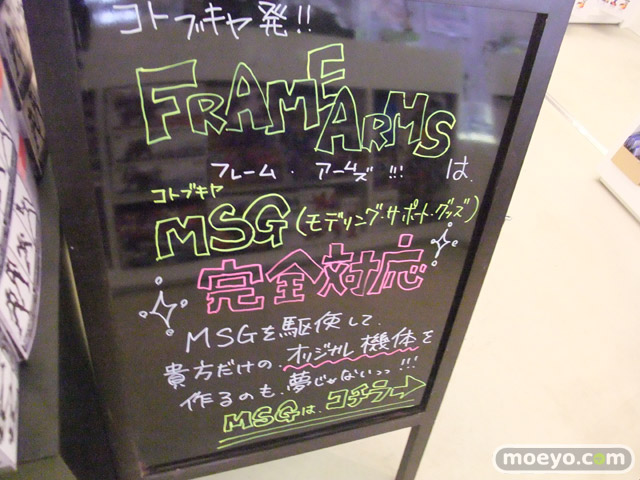 コトブキヤ発!!
FRAME ARMS
フレーム・アームズ!!! は、
コトブキヤ
MSG(モデリング・サポート・グッズ)
完全対応
MSGを駆使して、
貴方だけの、オリジナル機体を
作るのも、夢じゃないっっ!!!
MSGは、コチラ→
moeyo.com